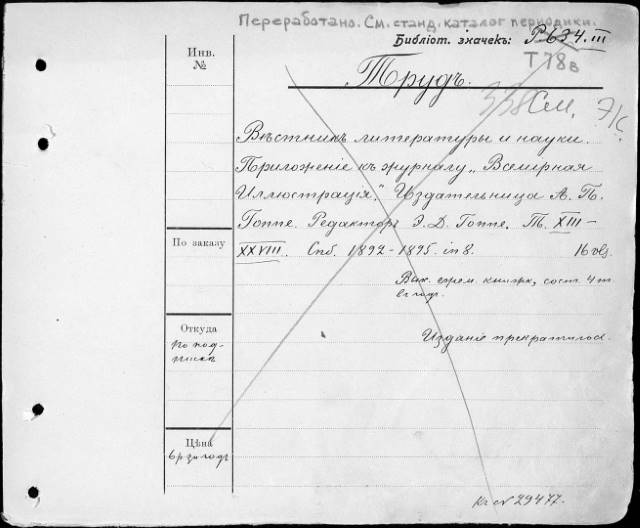 Переработано. См. станд. каталог периодики.
Инв.
№
Библіот. значекъ: Р 634.III
Т78в
Трудъ.
338 См. Э/С
Вѣстникъ литературы и науки.
Приложеніе къ журналу „Всемірная
Иллюстрація". Издательница А. П.
Гоппе. Редакторъ Э. Д. Гоппе. Т. XIII–
По заказу
XXVIII. Спб. 1892–1895. in 8. 16 vls.
Вых. ежем. книжк., сост. 4 т.
въ годъ.
Откуда
по под-
пискѣ
Изданіе прекратилось.
Цѣна
6 р. въ годъ
Кг № 29477.